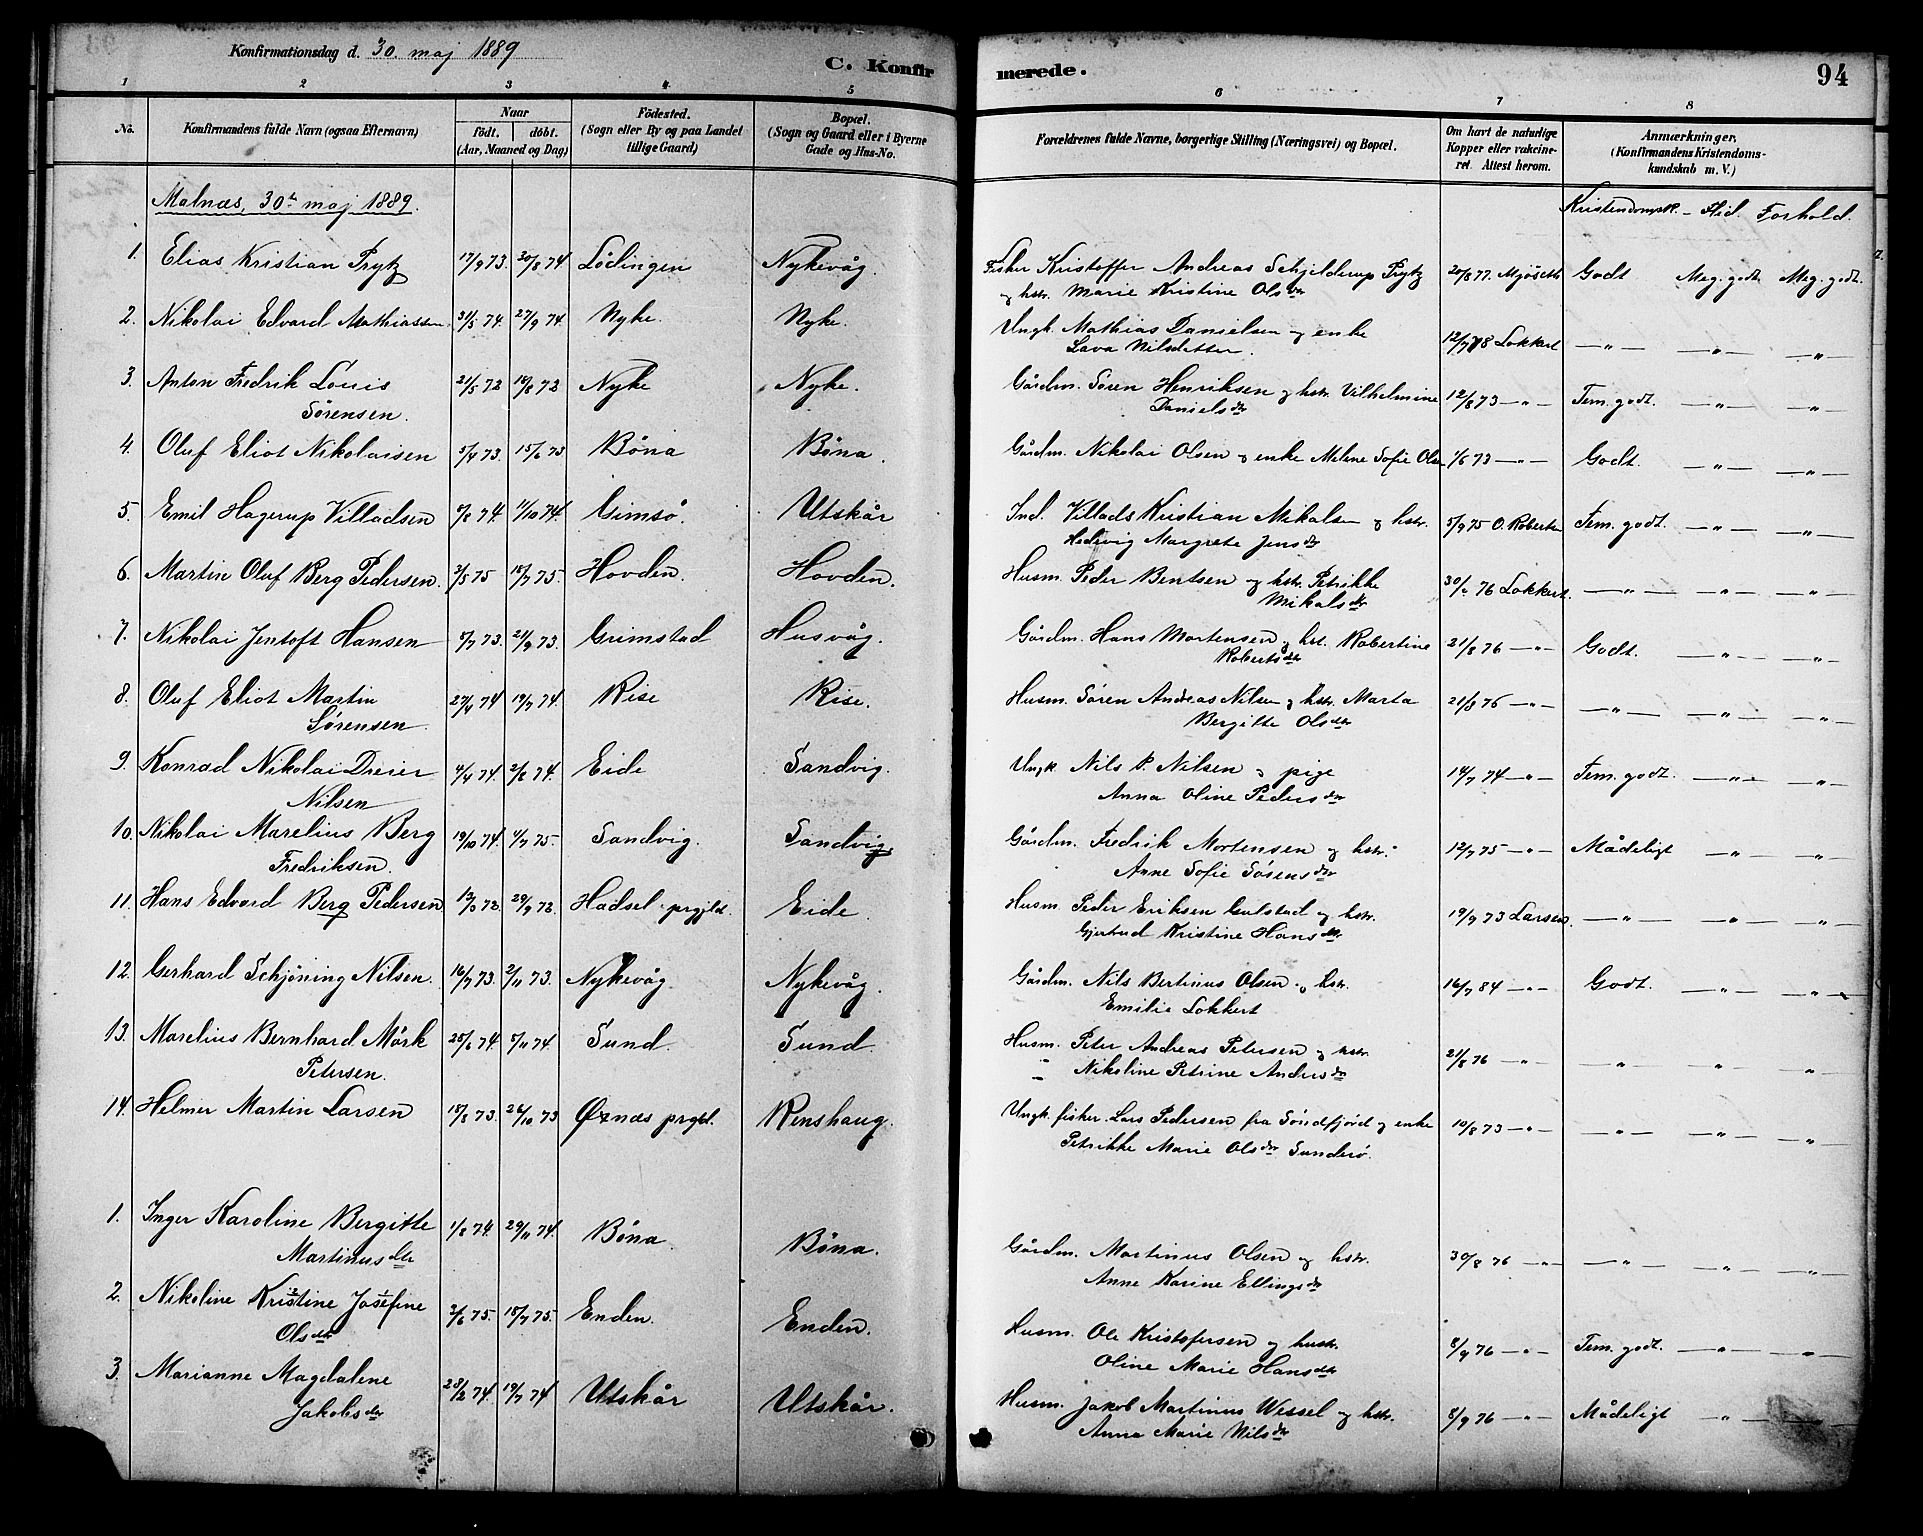 Konfirmationsdag d. 30. maj 1889
C. Konfirmerede.
94
1 2 3 4 5 6 7 8
No.
Konfirmandens fulde Navn (ogsaa Efternavn)
Naar
födt. döbt.
(Aar, Maaned og Dag)
Födested.
(Sogn eller By og paa Landet
tillige Gaard)
Bopæl.
(Sogn og Gaard eller i Byerne
Gade og Hus-No.
Forældrenes fulde Navne, borgerlige Stilling (Næringsvei) og Bopæl.
Om havt de naturlige
Kopper eller vakcine-
ret. Attest herom.
Anmærkninger,
(Konfirmandens Kristendoms-
kundskab m. V.)
Malnæs, 30te maj 1889.
Kristendomsk. - Flid. Forhold.
1. Elias Kristian Prytz 17/9 73. 30/8 74 Lödingen Nykevåg. Fisker Kristoffer Andreas Schjelderup Prytz 20/8 77. Mjöseth Godt Meg. godt Meg. godt.
og hstr. Marie Kristine Olsdtr
2. Nikolai Edvard Mathiassen. 31/5 74. 27/9 74. Nyke. Nyke. Ungk. Mathias Danielsen og enke 12/7 78 Lokkert —"— —"— —"—
Lava Nilsdatter.
3. Anton Fredrik Louis 21/5 72 18/8 72 Nyke Nyke. Gårdm. Sören Henriksen og hstr. Vilhelmine 12/8 73 —"— Tem. godt. —"— —"—
Sørensen. Danielsdtr
4. Oluf Eliot Nikolaisen 5/4 73. 15/6 73 Böna Böna. Gårdm. Nikolai Olsen og enke Milene Sofie Olsen 1/6 73 —"— Godt. —"— —"—
5. Emil Hagerup Villadsen 9/8 74 11/10 74. Gimsö. Utskår Ind. Villads Kristian Mikalsen og hstr. 5/9 75 O. Robertsen Tem. godt. —"— —"—
Hedevig Margrete Jensdtr
6. Martin Oluf Berg Pedersen. 3/5 75 18/7 75. Hovden. Hovden. Husm. Peder Bentsen og hstr. Petrikke 30/6 76 Lokkert. —"— —"— —"—
Mikalsdtr
7. Nikolai Jentoft Hansen 5/7 73. 21/9 73. Grimstad Husvåg. Gårdm. Hans Mortensen og hst. Robertine 21/8 76 —"— Godt. —"— —"—
Robertsdtr
8. Oluf Eliot Martin 27/4 74 19/7 74. Rise Rise. Husm. Sören Andreas Nilsen og hstr. Marta 21/8 76 —"— —"— —"— —"—
Sørensen Bergitte Olsdtr
9. Konrad Nikolai Dreier 4/4 74. 2/8 74. Eide Sandvig. Ungk. Nils P. Nilsen og pige 14/7 74 —"— Tem. godt. —"— —"—
Nilsen Anna Oline Pedersdtr
10. Nikolai Marelius Berg 19/10 74. 4/7 75. Sandvig. Sandvig. Gårdm. Fredrik Mortensen og hstr. 12/7 75 —"— Mådeligt —"— —"—
Fredriksen. Anne Sofie Sörensdtr
11. Hans Edvard Berg Pedersen 13/3 73. 29/9 73. Hadsel prgjld. Eide Husm. Peder Eriksen Gulstad og hstr. 19/9 73 Larsen. —"— —"— —"—
Gjertrud Kristine Hansdtr
12. Gerhard Schjöning Nilsen. 16/7 73. 2/11 73. Nykevåg Nykevåg. Gårdm. Nils Bertinus Olsen og hstr. 16/7 84 —"— Godt. —"— —"—
Emilie Lokkert
13. Marelius Bernhard Mörk 25/6 74. 5/11 74. Sund. Sund. Husm. Peter Andreas Petersen og hstr. 21/8 76 —"— —"— —"— —"—
Petersen. Nikoline Petrine Andersdtr
14. Helmer Martin Larsen 18/8 73. 26/10 73 Øxnæs prgjd. Renshaug. Ungk. fisker Lars Pedersen fra Söndfjord og enke 10/8 73 —"— —"— —"— —"—
Petrikke Marie Olsdtr Sunderö.
1. Inger Karoline Bergitte 1/8 74. 29/11 74. Böna. Böna. Gårdm. Martinus Olsen og hstr. 30/8 76 —"— —"— —"— —"—
Martinusdtr Anne Karine Ellingsdtr
2. Nikoline Kristine Josefine 2/6 75. 18/7 75. Enden. Enden. Husm. Ole Kristofersen og hustr. 8/9 76 —"— Tem. godt. —"— —"—
Olsdtr. Oline Marie Hansdtr
3. Marianne Magdalene 28/2 74. 19/7 74 Utskår Utskår. Husm. Jakob Martinus Wessel og hstr. 8/9 76 —"— Mådeligt —"— —"—
Jakobsdtr Anna Marie Nilsdtr